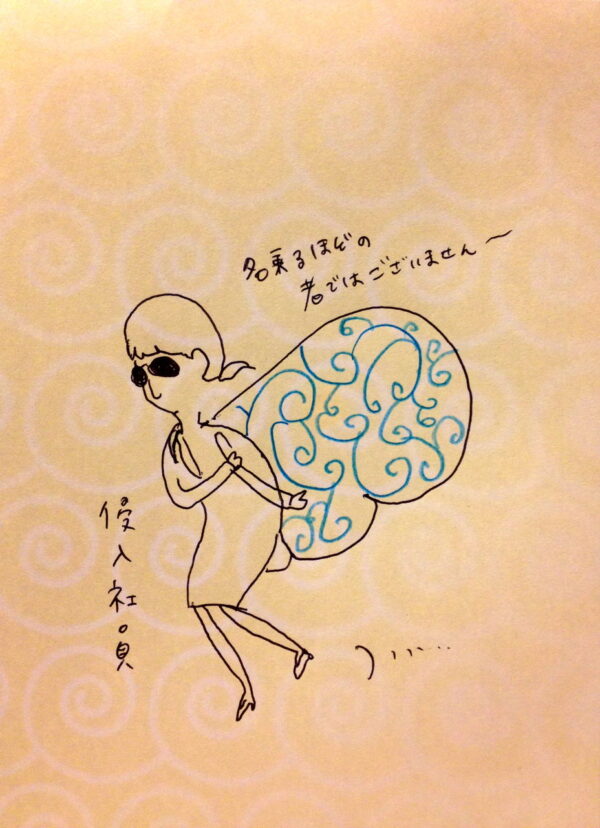 名乗るほどの
者ではございません〜
侵入社員